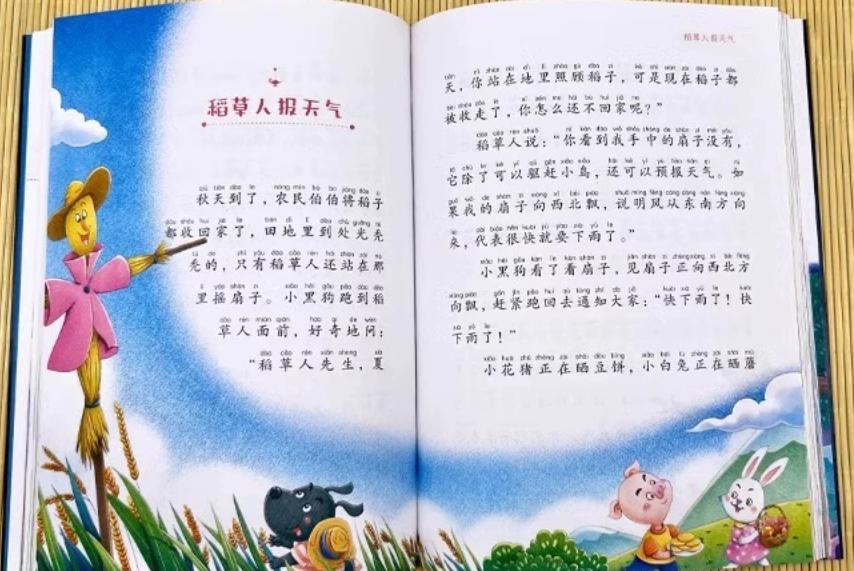 稻草人报天气
秋天到了，农民伯伯将稻子
都收回家了，田地里到处光秃
秃的，只有稻草人还站在那
里摇扇子。小黑狗跑到稻
草人面前，好奇地问：
“稻草人先生，夏
稻草人报天气
天，你站在地里照顾稻子，可是现在稻子都
被收走了，你怎么还不回家呢？”
稻草人说：“你看到我手中的扇子没有，
它除了可以驱赶小鸟，还可以预报天气。如
果我的扇子向西北飘，说明风从东南方向
来，代表很快就要下雨了。”
小黑狗看了看扇子，见扇子正向西北方
向飘，赶紧跑回去通知大家：“快下雨了！快
下雨了！”
小花猪正在晒豆饼，小白兔正在晒蘑